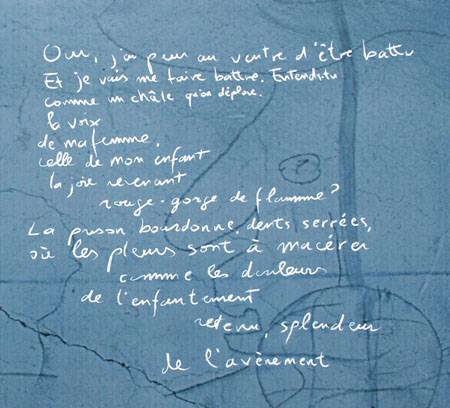 Oui, j'ai peur au ventre d'être battu
Et je vais me faire battre. Entends-tu
comme un châle qu'on déploie.
la voix
de ma femme.
celle de mon enfant
la joie revenant
rouge-gorge de flamme?
La prison bourdonne, dents serrées,
où les pleurs sont à macérer
comme les douleurs
de l'enfantement
retenu, splendeur
de l'avènement